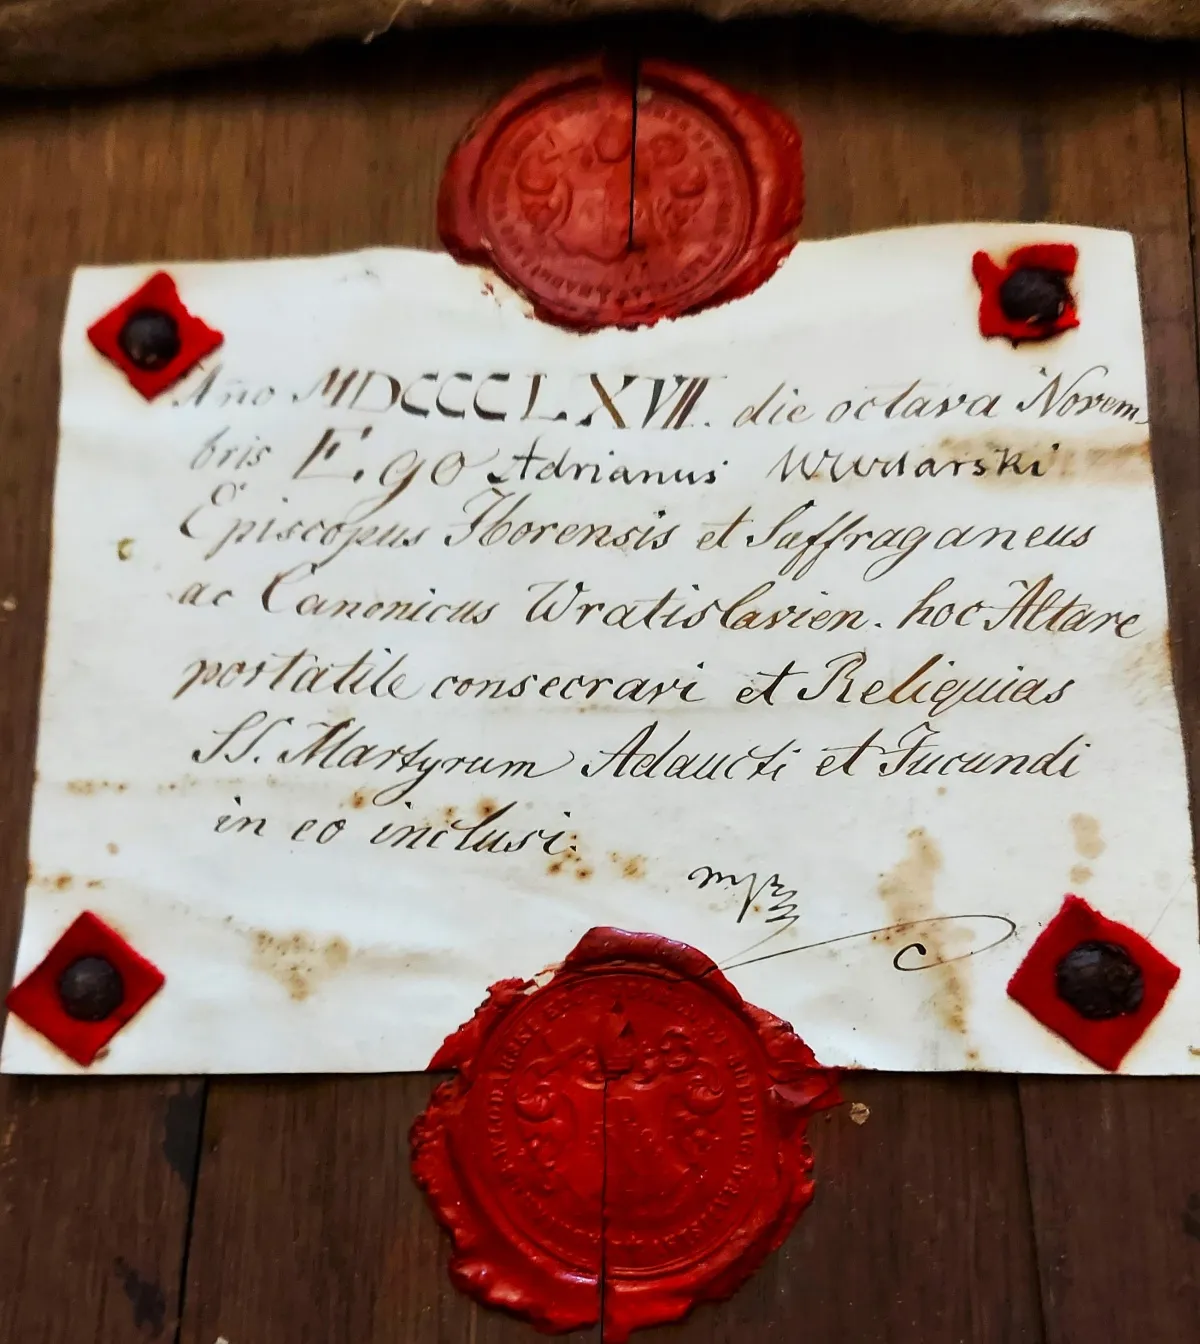 Año MDCCCLXVII. die octava Novem
bris Ego Adrianus Wlodarski
Episcopus Iborensis et Suffraganeus
ac Canonicus Wratislavien. hoc Altare
portatile consecravi et Reliquias
SS. Martyrum Adaucti et Jucundi
in eo inclusi.